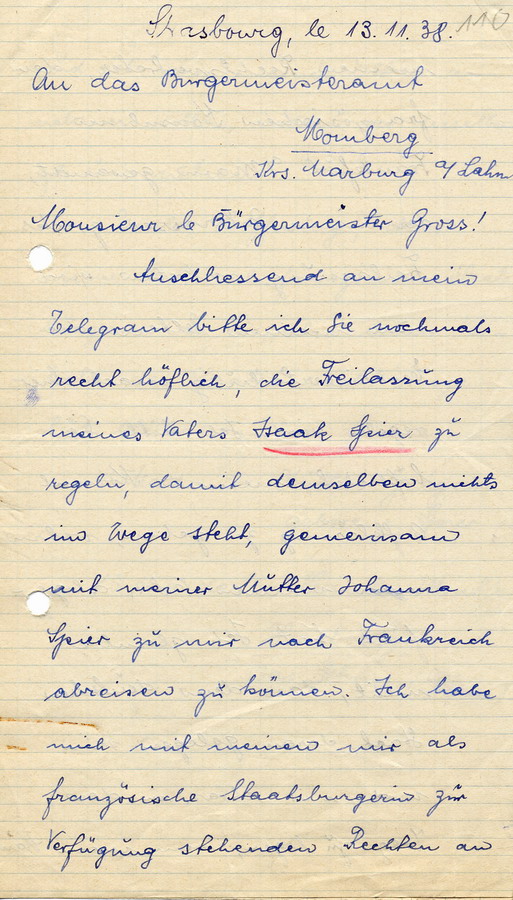 Strasbourg, le 13.11.38.
110
An das Bürgermeisteramt
Momberg
Krs. Marburg a/Lahn
Monsieur le Bürgermeister Gross!
Anschliessend an mein
Telegram bitte ich Sie nochmals
recht höflich, die Freilassung
meines Vaters Isaak Spier zu
regeln, damit demselben nichts
im Wege steht, gemeinsam
mit meiner Mutter Johanna
Spier zu mir nach Frankreich
abreisen zu können. Ich habe
mich mit meinen mir als
französische Staatsburgerin zür
Verfügung stehenden Rechten an